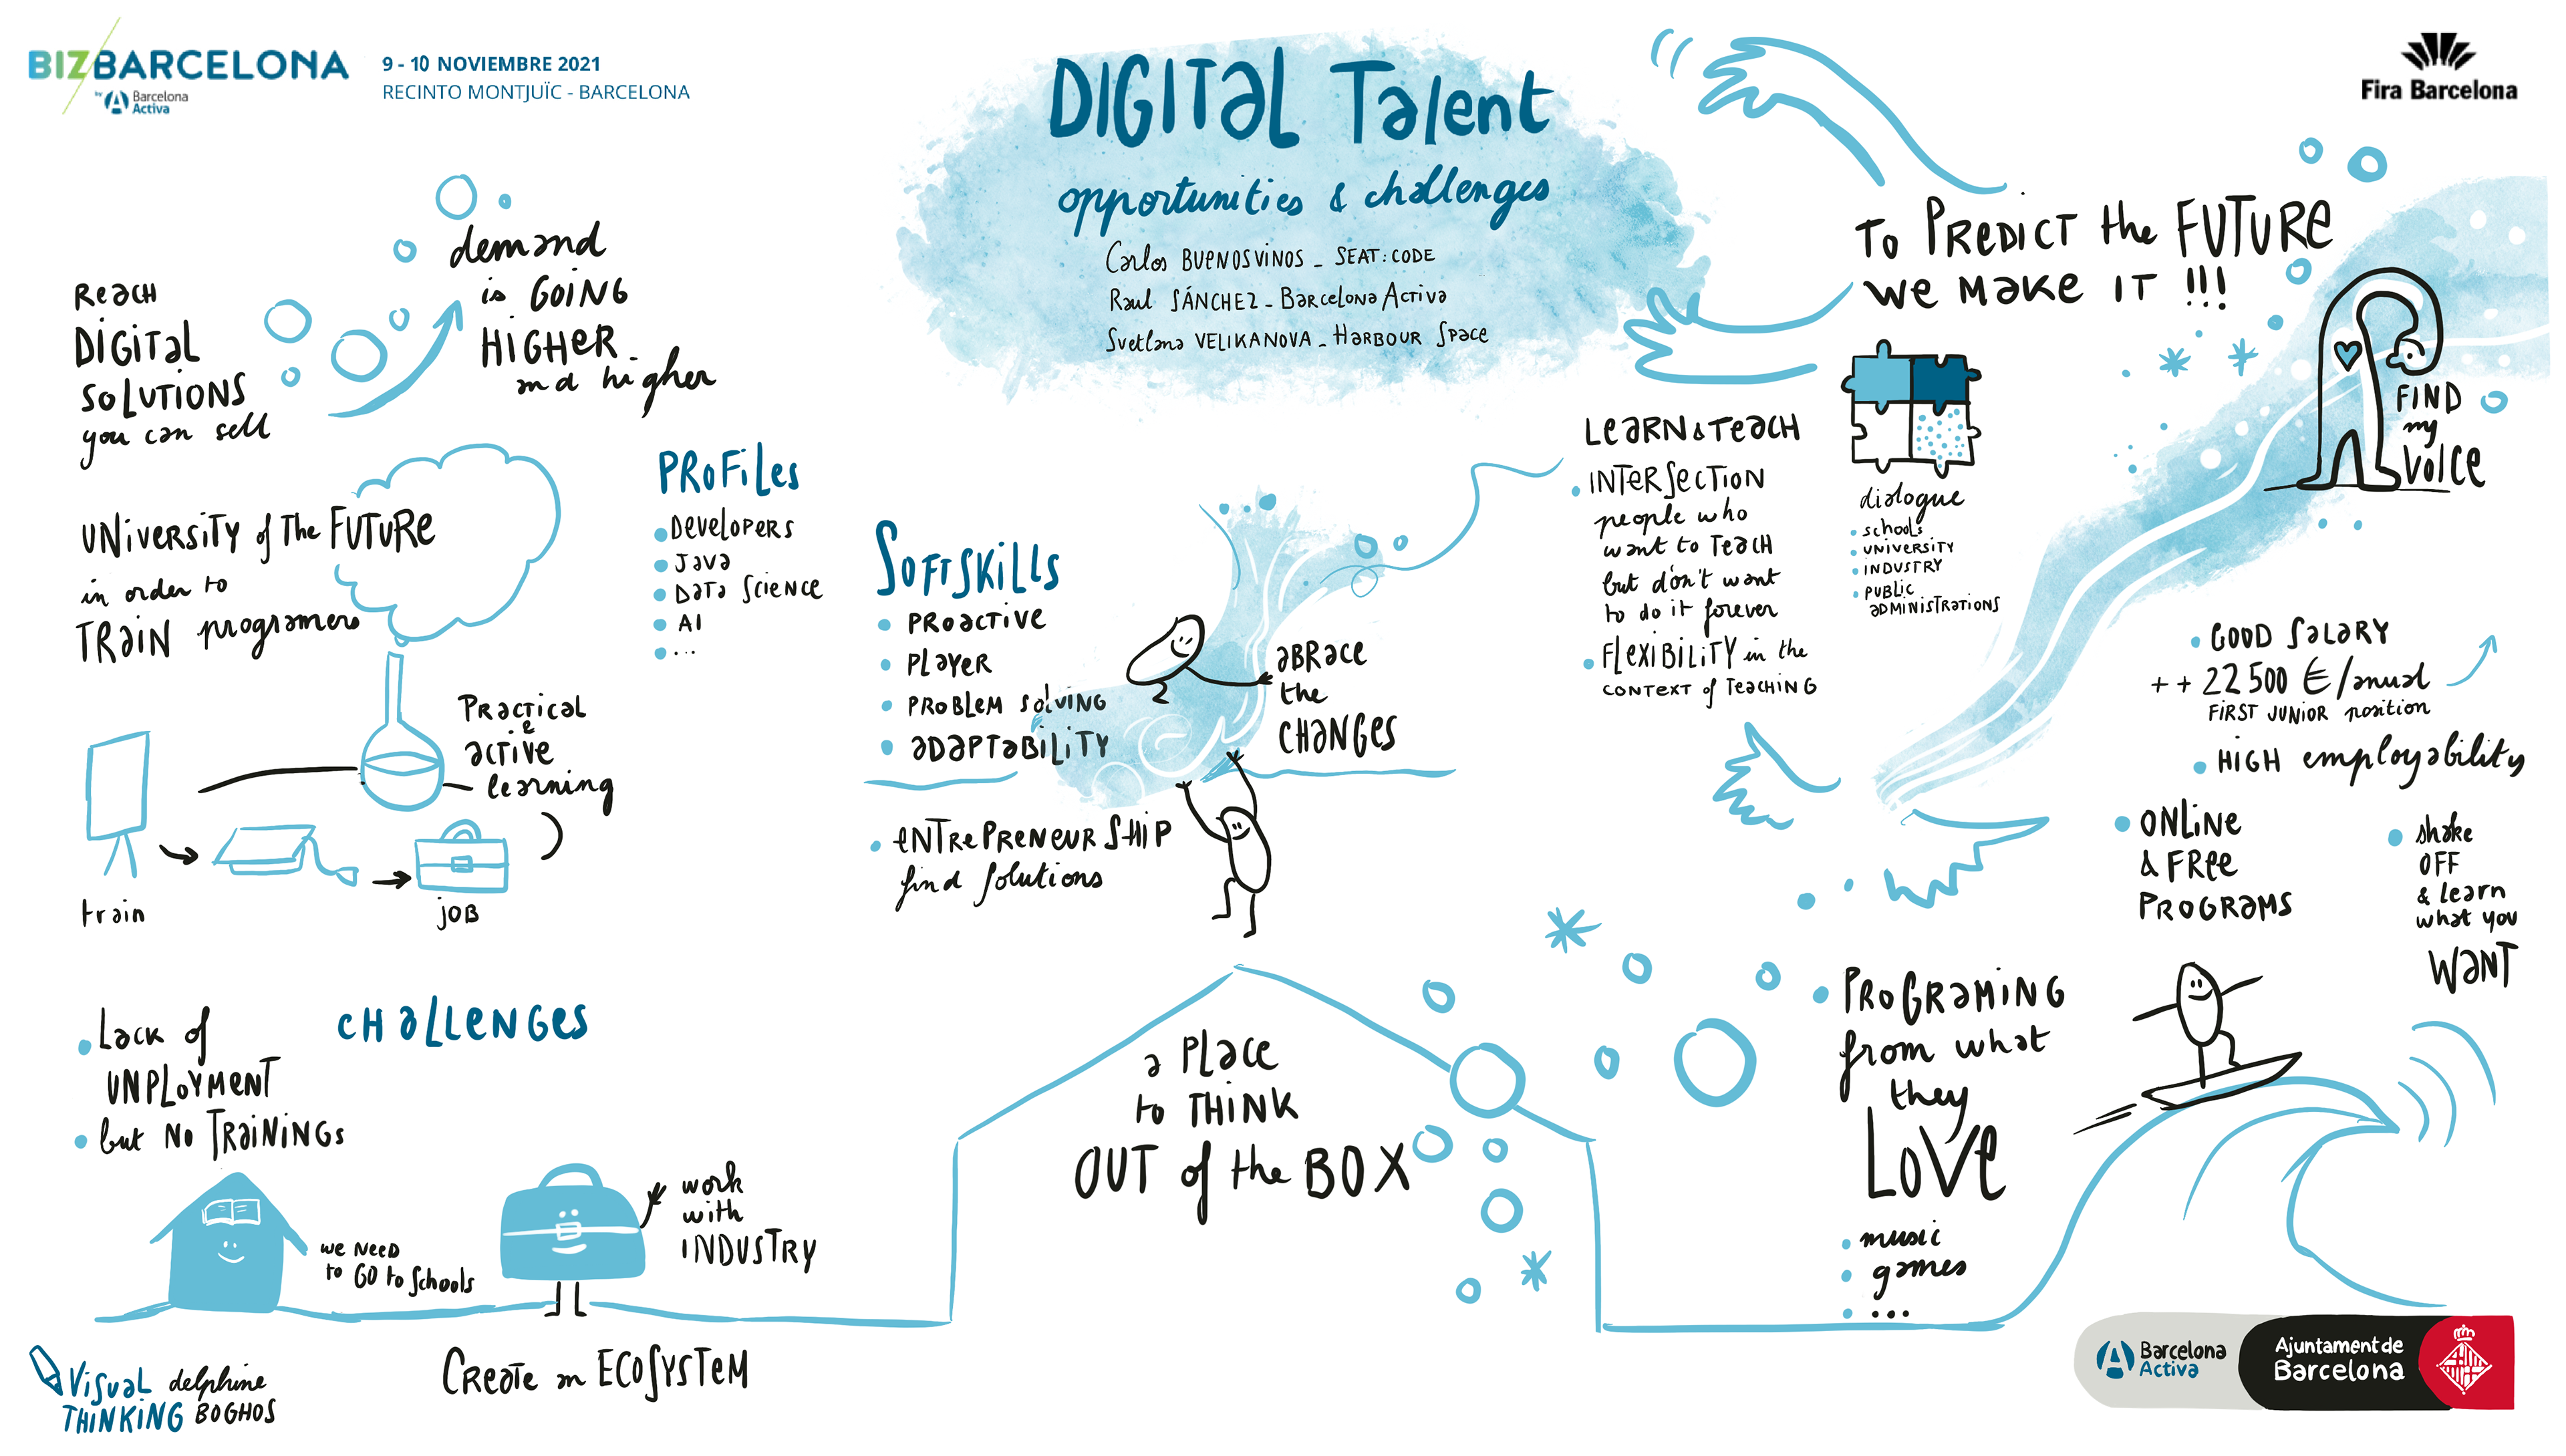 BIZBARCELONA
by Barcelona
Activa
9 - 10 NOVIEMBRE 2021
RECINTO MONTJUÏC - BARCELONA
DIGITAL Talent
opportunities & challenges
Carlos BUENOSVINOS - SEAT:CODE
Raul SÁNCHEZ - Barcelona Activa
Svetlana VELIKANOVA - HARBOUR Space
Fira Barcelona
Reach
DIGITAL
SOLUTIONS
you can sell
demand
is GOING
HIGHER
and higher
UNIVERSITY of The FUTURE
in order to
TRAIN programers
Practical
&
active
learning
train
JOB
PROFILES
DEVELOPERS
JAVA
DATA SCIENCE
AI
...
SOFTSKILLS
PROACTIVE
PLAYER
PROBLEM SOLVING
ADAPTABILITY
ABRACE
the
CHANGES
ENTREPRENEURSHIP
find solutions
To PREDICT the FUTURE
we MAKE IT !!!
LEARN & TEACH
INTERSECTION
people who
want to TEACH
but don't want
to do it forever
FLEXIBILITY in the
CONTEXT of TEACHING
dialogue
schools
UNIVERSITY
INDUSTRY
PUBLIC
ADMINISTRATIONS
FIND
my
VOICE
GOOD SALARY
++ 22 500 €/anual
FIRST JUNIOR position
HIGH employability
ONLINE
& FREE
PROGRAMS
shake
OFF
& learn
what you
WANT
PROGRAMING
from what
they
LOVE
music
games
...
CHALLENGES
Lack of
UNPLOYMENT
but NO TRAININGS
we NEED
to GO to Schools
work
with
INDUSTRY
Create an ECOSYSTEM
a PLACE
to THINK
OUT of the BOX
VISUAL
THINKING
delphine
BOGHOS
Barcelona
Activa
Ajuntament de
Barcelona